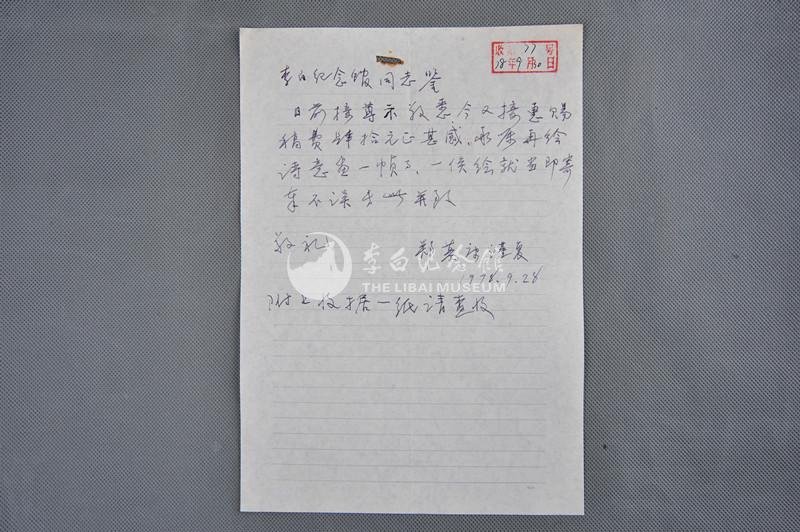 收 77 号
78年9月30日
李白纪念馆同志鉴
日前接尊示敬悉今又接惠赐
稿费肆拾元正甚感,承属再绘
诗意画一帧了,一俟绘就当即寄
奉不误专此并致
敬礼
郑慕康谨复
1978.9.28
附上收据一纸请查收
李白纪念馆
THE LIBAI MUSEUM